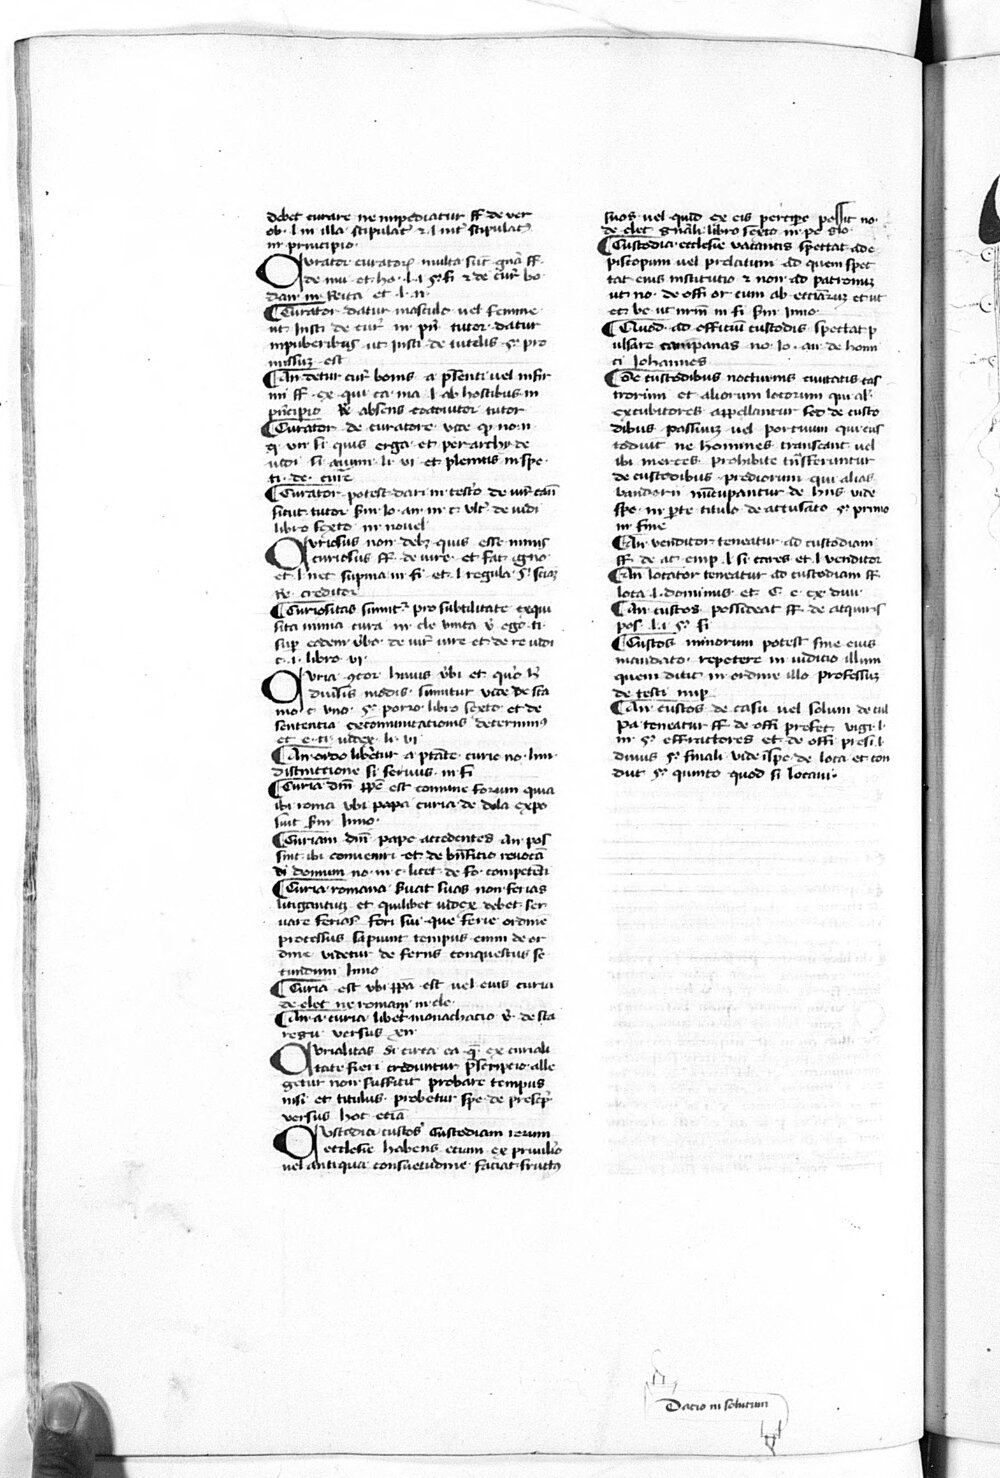 debet curare ne impediatur ff de ver
ob l in illa stipulat et l int stipulat
in principio
Curator curatorum multa sunt
de mu et ho l i § fi et de cur bo
dan in et l ii
Curator datur masculo vel femine
ut Insti de cur in pri tutor datur
impuberibus ut Insti de tutelis § pro
missum est
An detur cur bonis a presenti vel infir
mi ff ex qui ca ma l ab hostibus in
principio Re absens coadiutor tutor
Curator de curatore vide
si quis erga et
vi et in spe
ti de cure
Curator potest dari in testo de
sicut tutor sm Jo an in c ult de iudi
libro sexto in novel
Curiosus non debet quis esse nimis
curiosus ff de iure et fac igno
et l nec supina in fi et l regula § sciat
Re creditor
Curiositas sumitur pro subtilitate exqui
sita nimia cura in cle unica ergo ti
sup eodem verbo de iure et de re iudi
c i libro vi
Curia huius ubi et quo
diversis modis sumitur vide de sta
mo c uno § porro libro sexto et de
sententia excommunicationis
et e ti iudex li vi
An ordo liberetur a ptate curie no Inn
distinctione si servus in fi
Curia dni ppe est comune forum quia
ibi roma ubi papa curia de dola expo
sm Inno
Curiam dni pape accedentes an pos
sint ibi conveniri et de bnficio revocan
di domum no in c licet de fo competenti
Curia romana suas non ferias
litigantium et quilibet iudex debet ser
vare ferias fori sui que ferie ordine
processus sapiunt tempus enim de or
dine videtur de feriis conquestus se
cundum Inno
Curia est ubi ppa est vel eius curia
de elec ne romani in cle
An a curia liberet monachatio v de sta
regu versus xii
Curialitas di circa ea q ex curiali
tate fieri creduntur prescriptio alle
getur non sufficit probare tempus
nisi et titulus probetur spe de prescrip
versus hoc etia
Custodia custos Custodiam rerum
ecclesie habens etiam ex privilegio
vel antiqua consuetudine faciat fructus
suos vel quid ex eis percipere possit no
de elec gnali libro sexto in pe glo
Custodia ecclesie vacantis spectat ad e
piscopum vel prelatum ad quem spec
tat eius institutio et non ad patronum
ut no de offi or cum ab ecclarum et ut
ec be ut nrm in fi sm Inno
Quod ad officium custodis spectat p
ulsare campanas no Jo an de homi
ci Johannes
De custodibus nocturnis civitatis cas
trorum et aliorum locorum qui al
excubitores appellantur sed de custo
dibus passium vel portuum qui cus
todiunt ne homines transeant vel
ibi merces prohibite transferuntur
de custodibus prediorum qui alias
nuncupantur de hiis vide
spe in parte titulo de accusato § primo
in fine
An venditor teneatur ad custodiam
ff de ac emp l si cares et l venditor
An locator teneatur ad custodiam ff
loca l dominus et C e ex diui
An custos possideat ff de acquiris
pos l i § si
Custos minorum potest sine eius
mandato repetere in iudicio illum
quem dicit in ordine illo professum
de testi imp
An custos de casu vel solum de cul
pa teneatur ff de offi prefec vigi l
in § effractores et de offi presi l
divus § finali vide ispe de loca et con
duc § quinto quod si locavi
Dacio in solutum